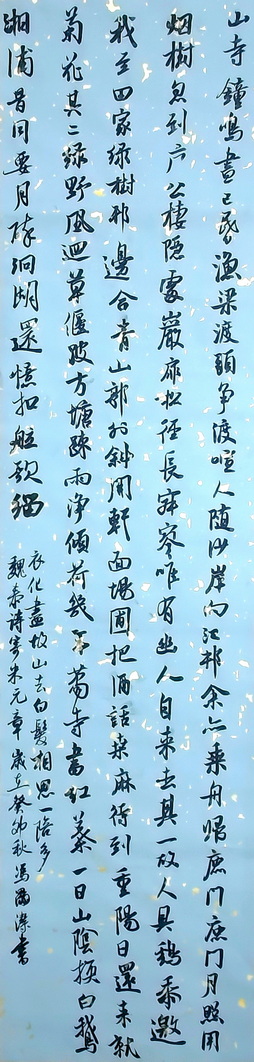 山寺鐘鳴晝已昏漁梁渡頭爭渡喧人隨沙岸向江邨余亦乘舟歸鹿門鹿門月照開
烟樹忽到龐公棲隱處巖扉松徑長寂寥唯有幽人自來去其一故人具鷄黍邀
我至田家綠樹邨邊合青山郭外斜開軒面場圃把酒話桑麻待到重陽日還來就
菊花其二綠野風迴草偃波方塘疎雨淨傾荷幾年蕭寺書紅葉一日山陰換白鵝
湘浦昔同要月醉洞湖還憶扣舷歌緇
衣化盡故山去白髮相思一陪多
魏泰詩寄米元章歲在癸卯秋馮書